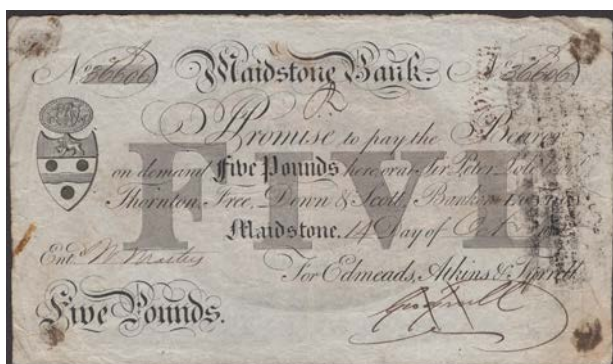 No 36606 Maidstone Bank. No 36606
I Promise to pay the Bearer
on demand Five Pounds here or at Sir Peter Pole Bart.
Thornton, Free, Down & Scott, Bankers London
Maidstone. 14 Day of Oct
Entd.
For Edmeads, Atkins & Tyrrell
Five Pounds.
FIVE